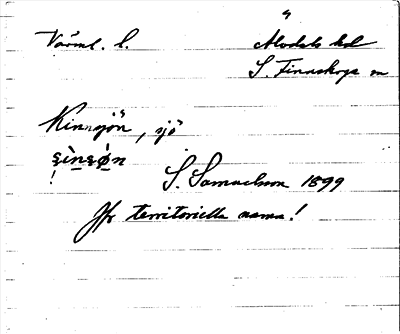 Värml. l. Älvdals hd
S. Finnskoga sn
Kinnsjön, sjö
şìnşö̀n
S. Samuelsson 1899
Jfr territoriella namn!